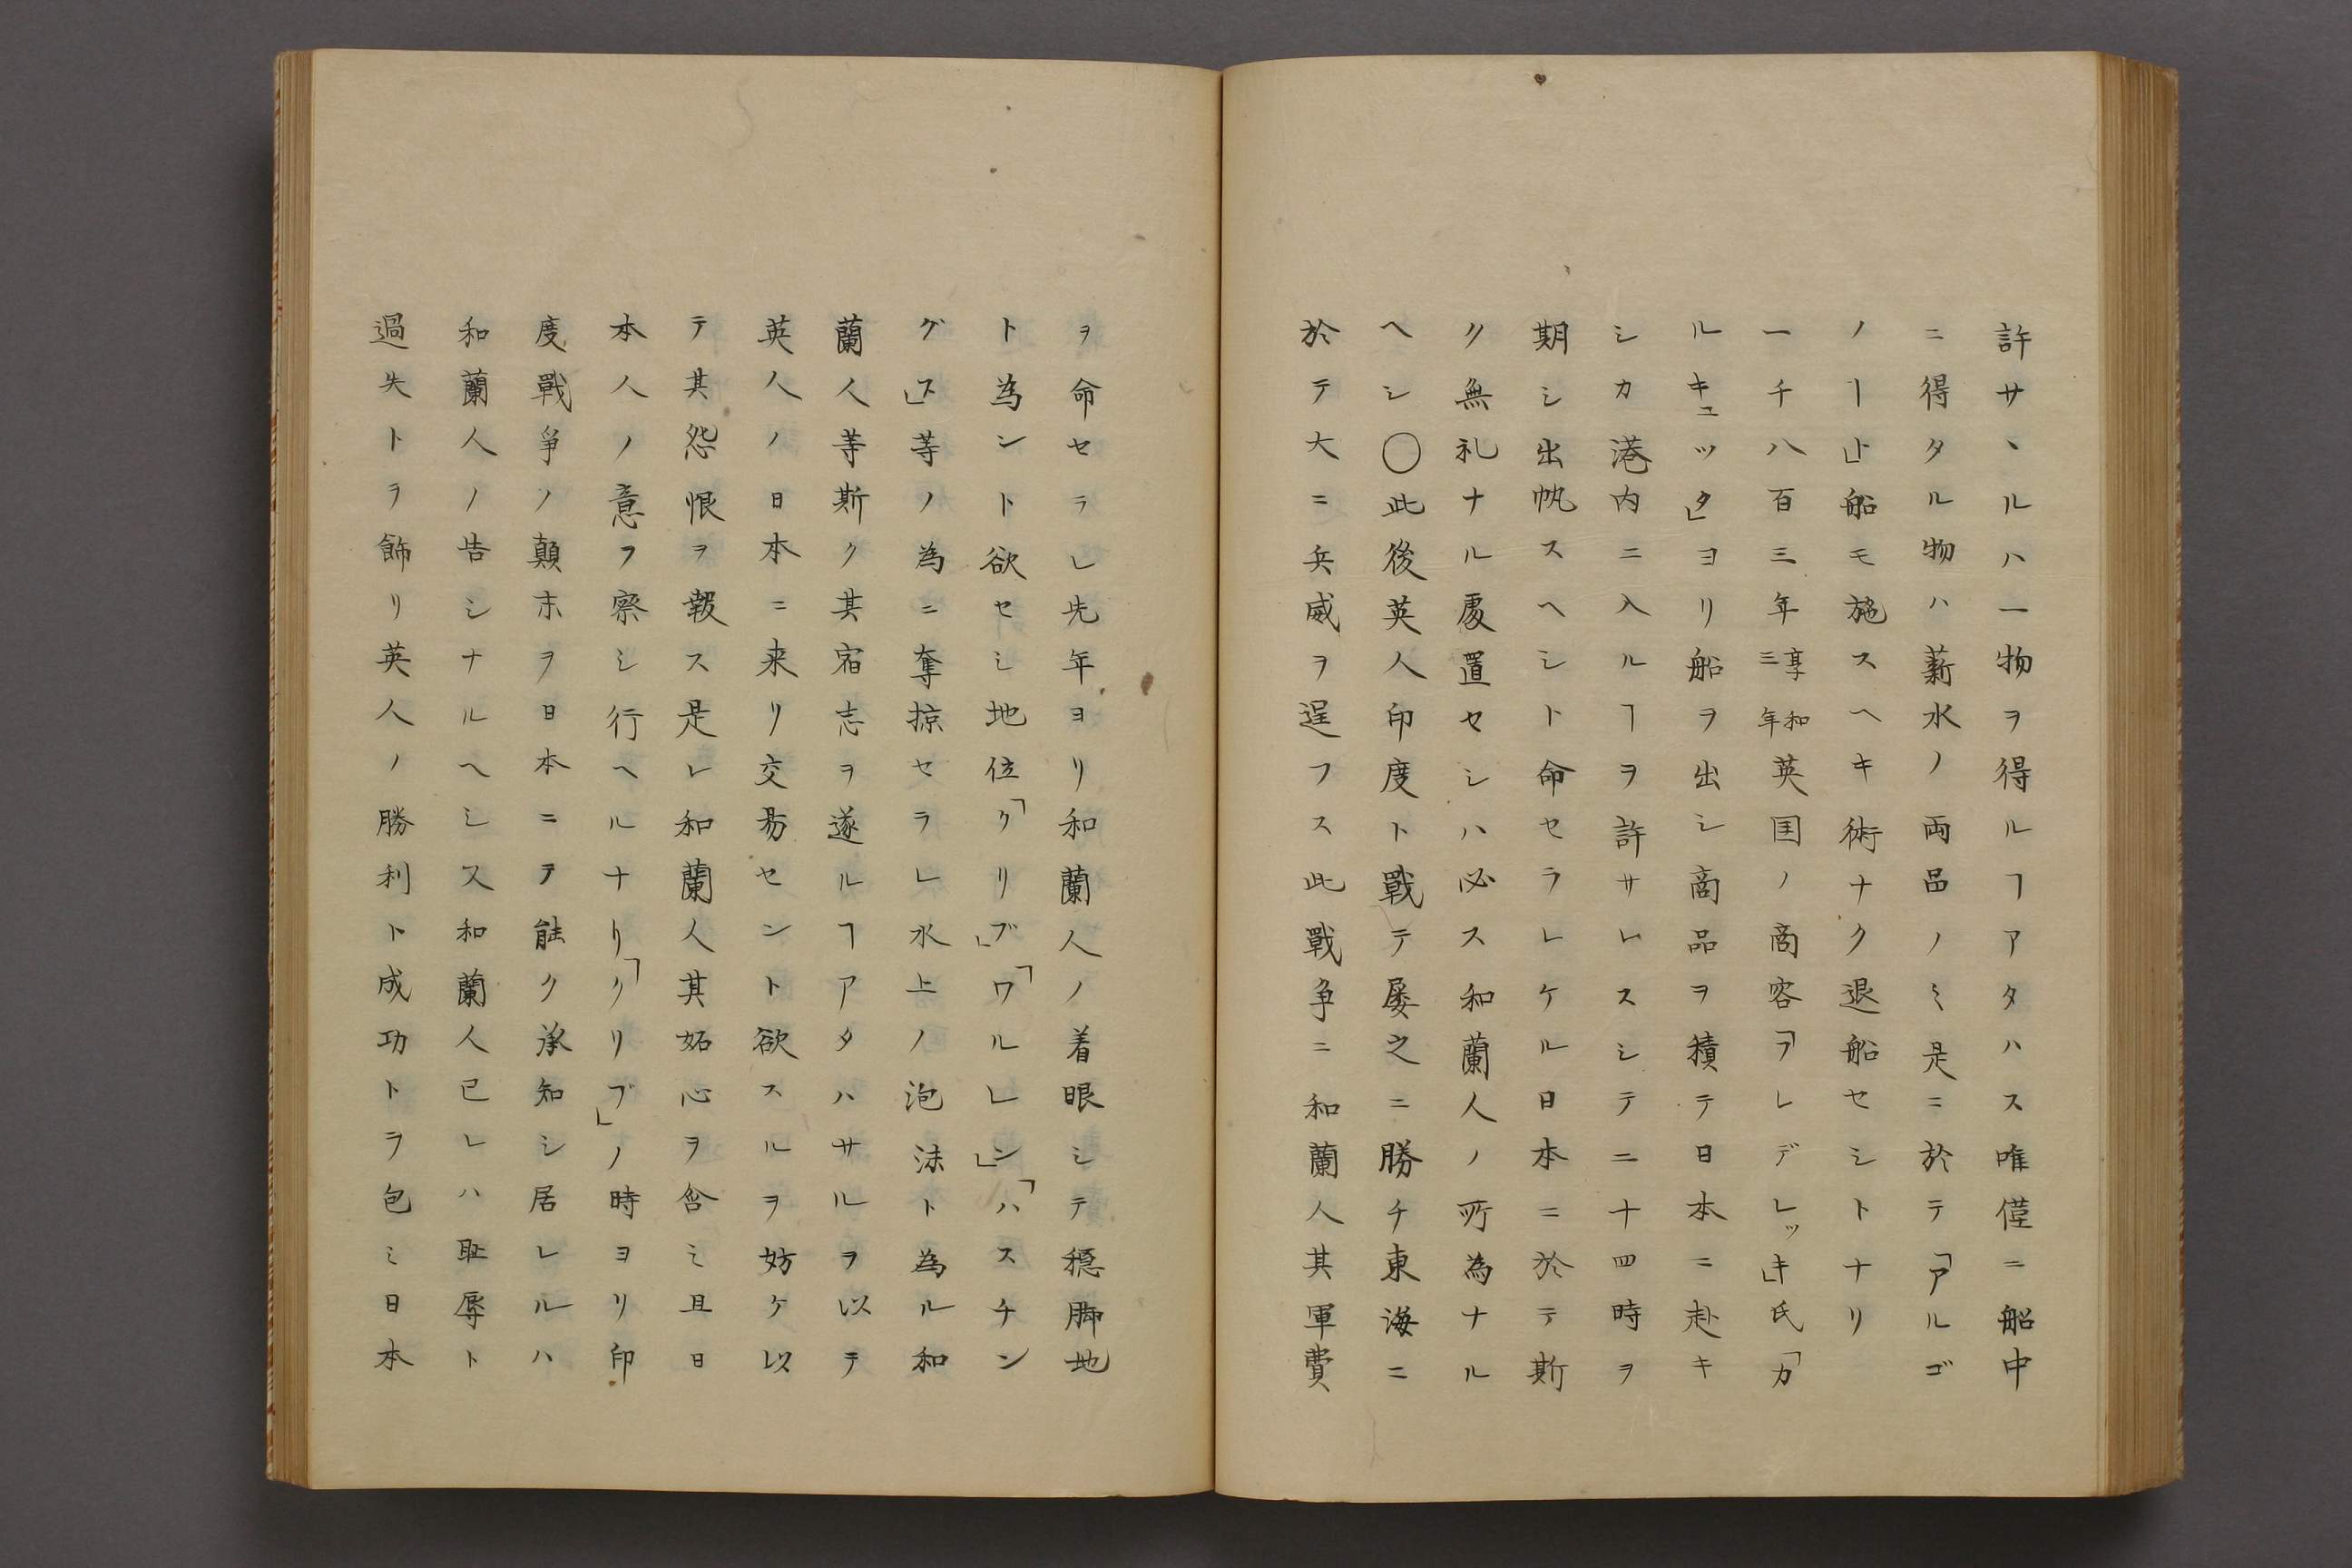 許サヽルハ一物ヲ得ルヿアタハス唯僅ニ船中
ニ得タル物ハ薪水ノ両品ノミ是ニ於テ「アルゴ
ノート」船モ施スヘキ術ナク退船セシトナリ
一千八百三年享和三年英国ノ商客「フレデレッキ」氏「カ
ルキュッタ」ヨリ船ヲ出シ商品ヲ積テ日本ニ赴キ
シカ港内ニ入ルヿヲ許サレスシテ二十四時ヲ
期シ出帆スヘシト命セラレケル日本ニ於テ斯
ク無礼ナル處置セシハ必ス和蘭人ノ所為ナル
ヘシ〇此後英人印度ト戰テ屡之ニ勝チ東海ニ
於テ大ニ兵威ヲ逞フス此戰争ニ和蘭人其軍費
ヲ命セラレ先年ヨリ和蘭人ノ着眼シテ穏脚地
ト為ント欲セシ地位「クリブ」「ワルレン」「ハスチン
グス」等ノ為ニ奪掠セラレ水上ノ泡沫ト為ル和
蘭人等斯ク其宿志ヲ遂ルヿアタハサルヲ以テ
英人ノ日本ニ来リ交易セント欲スルヲ妨ケ以
テ其怨恨ヲ報ス是レ和蘭人其妬心ヲ含ミ且日
本人ノ意ヲ察シ行ヘルナリ「クリブ」ノ時ヨリ印
度戰爭ノ顛末ヲ日本ニテ能ク承知シ居レルハ
和蘭人ノ告シナルヘシス和蘭人己レハ耻辱ト
過失トヲ飾リ英人ノ勝利ト成功トヲ包ミ日本